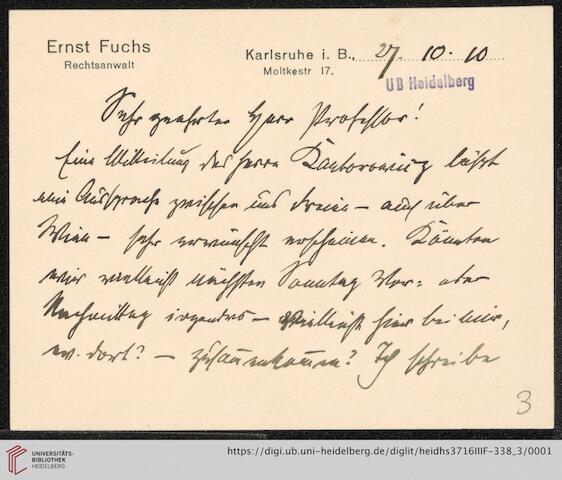 Ernst Fuchs
Rechtsanwalt
Karlsruhe i. B., 27. 10. 10
Moltkestr 17.
UB Heidelberg
Sehr geehrter Herr Professor!
Eine Mitteilung des Herrn Kantorowicz läßt
eine Aussprache zwischen uns dreien – auch über
Wien – sehr erwünscht erscheinen. Könnten
wir vielleicht nächsten Sonntag Vor- oder
Nachmittag irgendwo – vielleicht hier bei mir,
ev. dort? – zusammenkommen? Ich schreibe
3
UNIVERSITÄTS-
BIBLIOTHEK
HEIDELBERG
https://digi.ub.uni-heidelberg.de/diglit/heidhs3716IIIF-338_3/0001